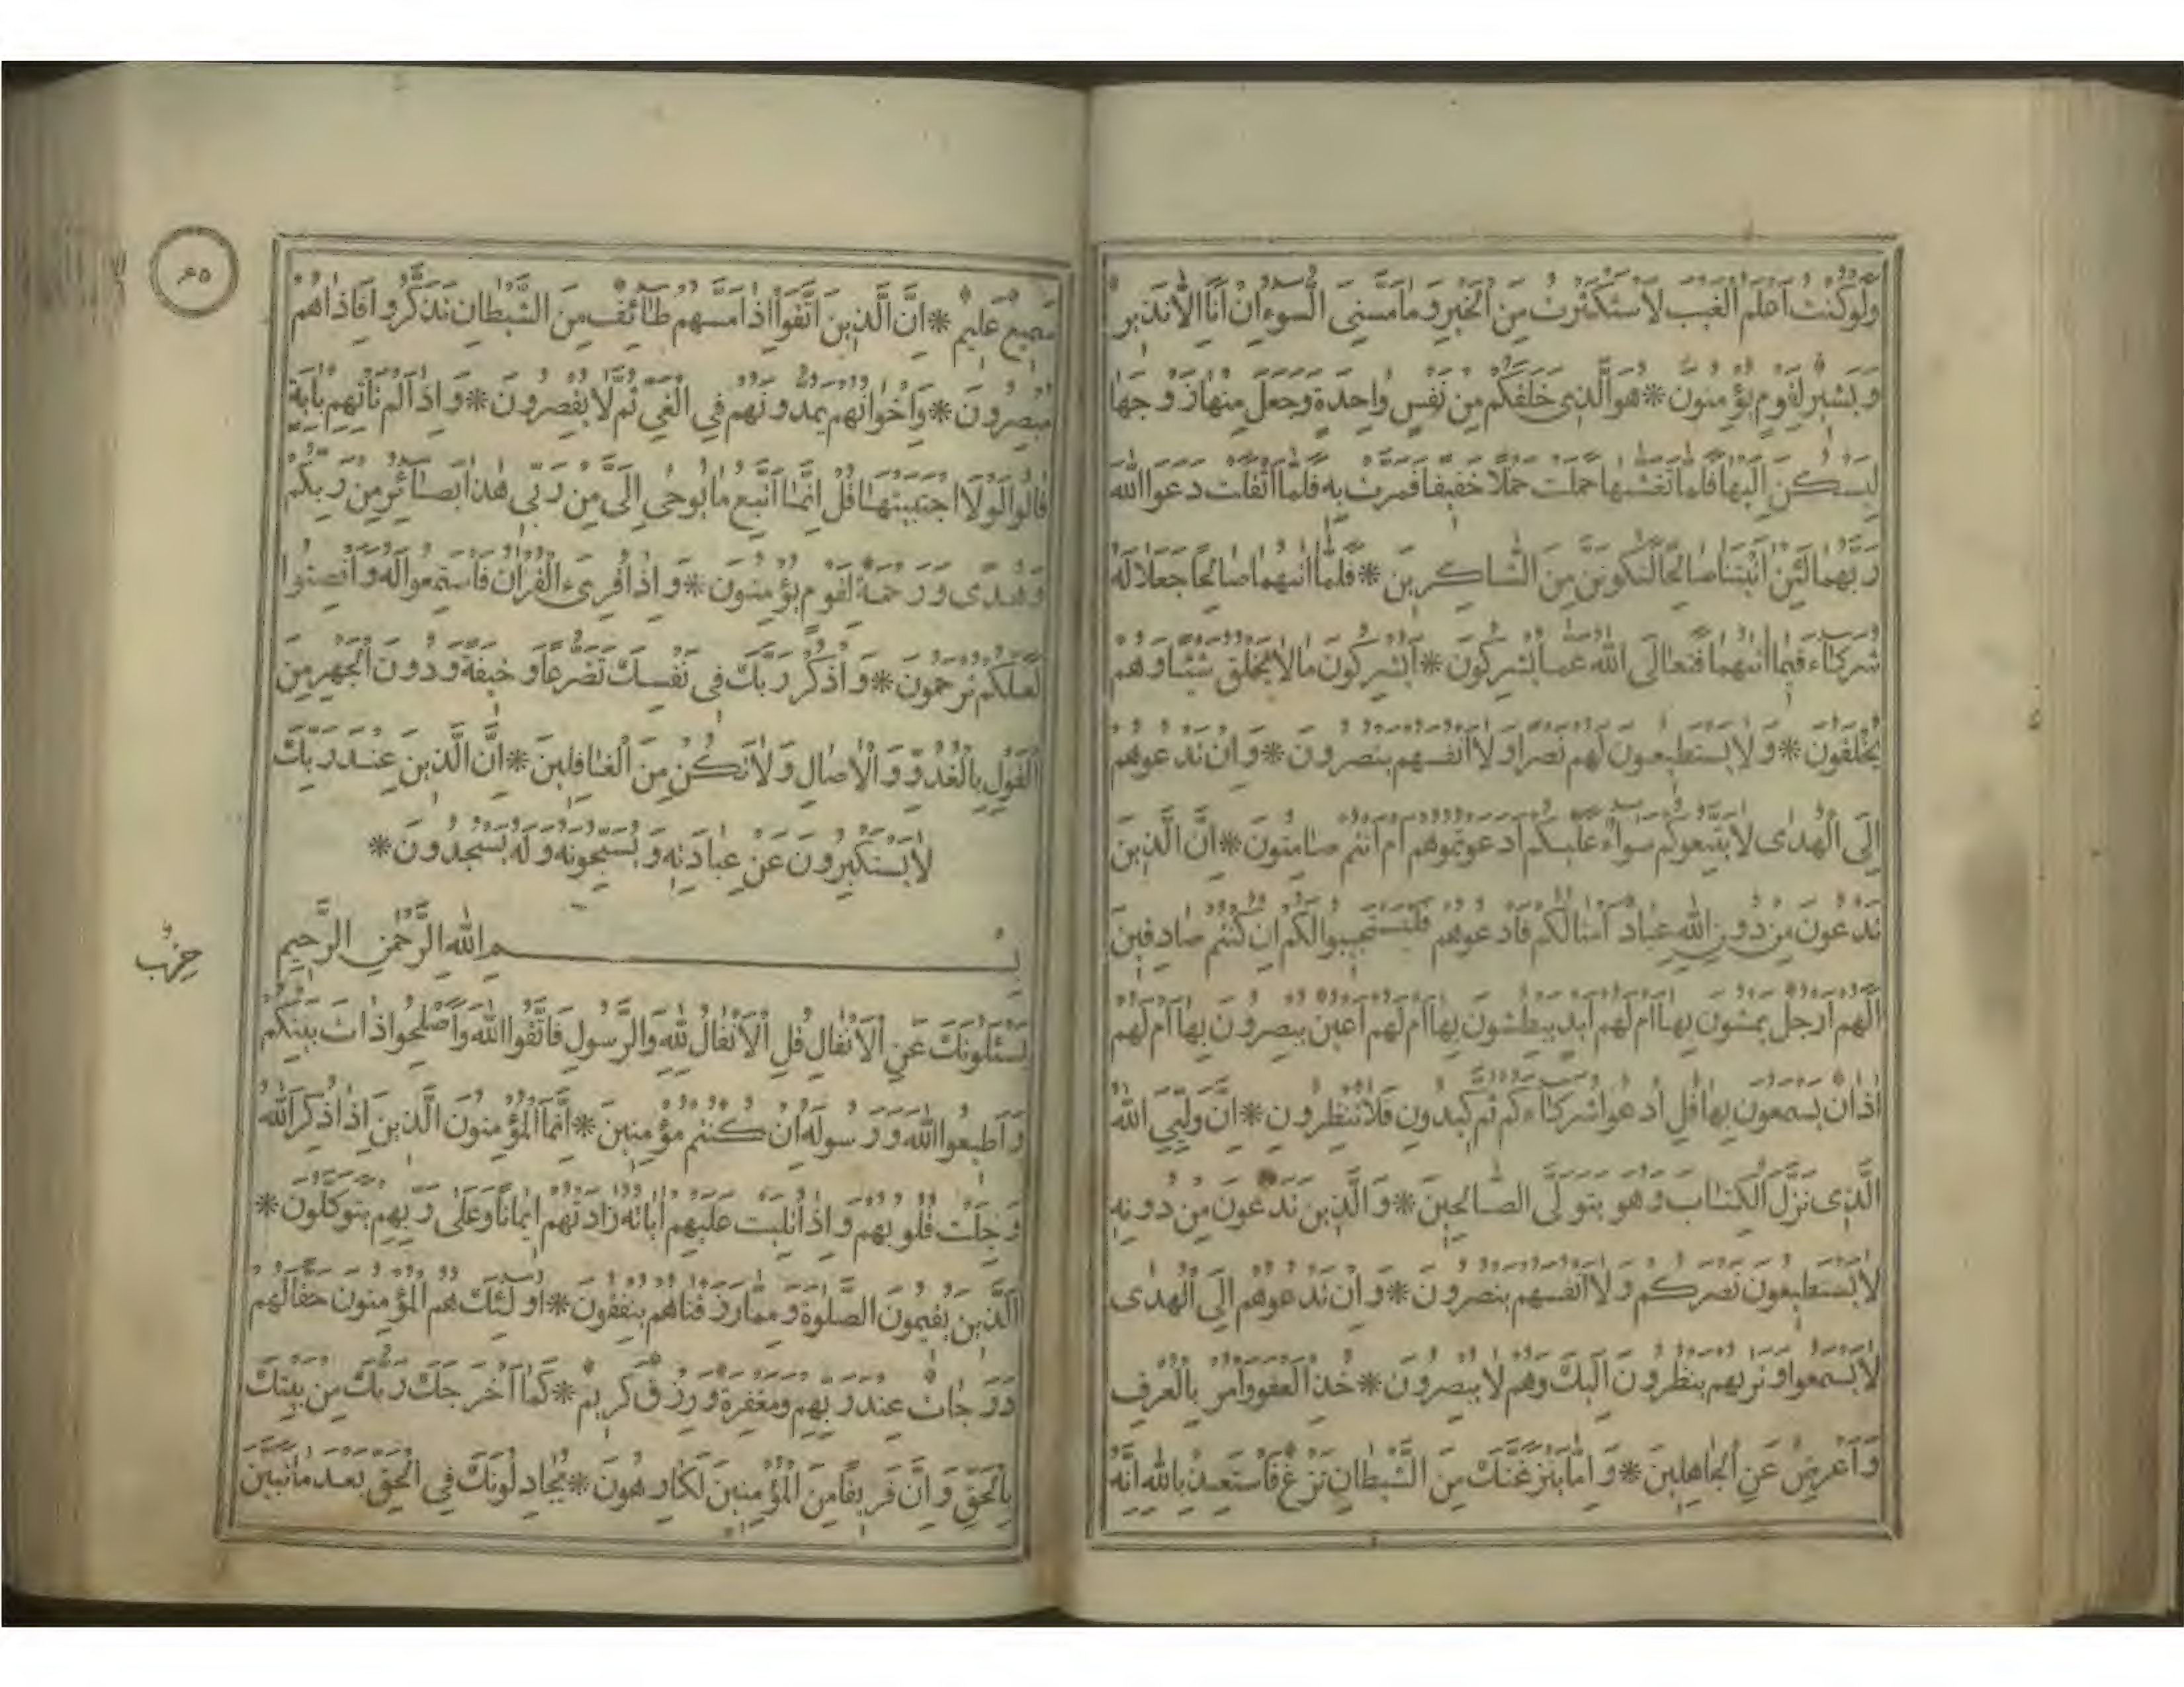 وَلَوْ كُنْتُ أَعْلَمُ الْغَيْبَ لَاسْتَكْثَرْتُ مِنَ الْخَيْرِ وَمَا مَسَّنِيَ السُّوءُ اِنْ اَنَا اِلَّا نَذِيرٌ
وَبَشِيرٌ لِقَوْمٍ يُؤْمِنُونَ * هُوَ الَّذِي خَلَقَكُمْ مِنْ نَفْسٍ وَاحِدَةٍ وَجَعَلَ مِنْهَا زَوْجَهَا
لِيَسْكُنَ اِلَيْهَا فَلَمَّا تَغَشّٰيهَا حَمَلَتْ حَمْلًا خَفِيفًا فَمَرَّتْ بِهِ فَلَمَّا اَثْقَلَتْ دَعَوَا اللّٰهَ
رَبَّهُمَا لَئِنْ اٰتَيْتَنَا صَالِحًا لَنَكُونَنَّ مِنَ الشَّاكِرِينَ * فَلَمَّا اٰتٰيهُمَا صَالِحًا جَعَلَا لَهُ
شُرَكَاءَ فِيمَا اٰتٰيهُمَا فَتَعَالَى اللّٰهُ عَمَّا يُشْرِكُونَ * اَيُشْرِكُونَ مَا لَا يَخْلُقُ شَيْئًا وَهُمْ
يُخْلَقُونَ * وَلَا يَسْتَطِيعُونَ لَهُمْ نَصْرًا وَلَا اَنْفُسَهُمْ يَنْصُرُونَ * وَاِنْ تَدْعُوهُمْ
اِلَى الْهُدٰى لَا يَتَّبِعُوكُمْ سَوَاءٌ عَلَيْكُمْ اَدَعَوْتُمُوهُمْ اَمْ اَنْتُمْ صَامِتُونَ * اِنَّ الَّذِينَ
تَدْعُونَ مِنْ دُونِ اللّٰهِ عِبَادٌ اَمْثَالُكُمْ فَادْعُوهُمْ فَلْيَسْتَجِيبُوا لَكُمْ اِنْ كُنْتُمْ صَادِقِينَ
اَلَهُمْ اَرْجُلٌ يَمْشُونَ بِهَا اَمْ لَهُمْ اَيْدٍ يَبْطِشُونَ بِهَا اَمْ لَهُمْ اَعْيُنٌ يُبْصِرُونَ بِهَا اَمْ لَهُمْ
اٰذَانٌ يَسْمَعُونَ بِهَا قُلِ ادْعُوا شُرَكَاءَكُمْ ثُمَّ كِيدُونِ فَلَا تُنْظِرُونِ * اِنَّ وَلِيِّيَ اللّٰهُ
الَّذِي نَزَّلَ الْكِتَابَ وَهُوَ يَتَوَلَّى الصَّالِحِينَ * وَالَّذِينَ تَدْعُونَ مِنْ دُونِهِ
لَا يَسْتَطِيعُونَ نَصْرَكُمْ وَلَا اَنْفُسَهُمْ يَنْصُرُونَ * وَاِنْ تَدْعُوهُمْ اِلَى الْهُدٰى
لَا يَسْمَعُوا وَتَرٰيهُمْ يَنْظُرُونَ اِلَيْكَ وَهُمْ لَا يُبْصِرُونَ * خُذِ الْعَفْوَ وَأْمُرْ بِالْعُرْفِ
وَاَعْرِضْ عَنِ الْجَاهِلِينَ * وَاِمَّا يَنْزَغَنَّكَ مِنَ الشَّيْطَانِ نَزْغٌ فَاسْتَعِذْ بِاللّٰهِ اِنَّهُ
٦٥
سَمِيعٌ عَلِيمٌ * اِنَّ الَّذِينَ اتَّقَوْا اِذَا مَسَّهُمْ طَائِفٌ مِنَ الشَّيْطَانِ تَذَكَّرُوا فَاِذَا هُمْ
مُبْصِرُونَ * وَاِخْوَانُهُمْ يَمُدُّونَهُمْ فِي الْغَيِّ ثُمَّ لَا يُقْصِرُونَ * وَاِذَا لَمْ تَأْتِهِمْ بِاٰيَةٍ
قَالُوا لَوْلَا اجْتَبَيْتَهَا قُلْ اِنَّمَا اَتَّبِعُ مَا يُوحٰى اِلَيَّ مِنْ رَبِّي هٰذَا بَصَائِرُ مِنْ رَبِّكُمْ
وَهُدًى وَرَحْمَةٌ لِقَوْمٍ يُؤْمِنُونَ * وَاِذَا قُرِئَ الْقُرْاٰنُ فَاسْتَمِعُوا لَهُ وَاَنْصِتُوا
لَعَلَّكُمْ تُرْحَمُونَ * وَاذْكُرْ رَبَّكَ فِي نَفْسِكَ تَضَرُّعًا وَخِيفَةً وَدُونَ الْجَهْرِ مِنَ
الْقَوْلِ بِالْغُدُوِّ وَالْاٰصَالِ وَلَا تَكُنْ مِنَ الْغَافِلِينَ * اِنَّ الَّذِينَ عِنْدَ رَبِّكَ
لَا يَسْتَكْبِرُونَ عَنْ عِبَادَتِهِ وَيُسَبِّحُونَهُ وَلَهُ يَسْجُدُونَ *
بِسْمِ اللّٰهِ الرَّحْمٰنِ الرَّحِيمِ
حزب
يَسْئَلُونَكَ عَنِ الْاَنْفَالِ قُلِ الْاَنْفَالُ لِلّٰهِ وَالرَّسُولِ فَاتَّقُوا اللّٰهَ وَاَصْلِحُوا ذَاتَ بَيْنِكُمْ
وَاَطِيعُوا اللّٰهَ وَرَسُولَهُ اِنْ كُنْتُمْ مُؤْمِنِينَ * اِنَّمَا الْمُؤْمِنُونَ الَّذِينَ اِذَا ذُكِرَ اللّٰهُ
وَجِلَتْ قُلُوبُهُمْ وَاِذَا تُلِيَتْ عَلَيْهِمْ اٰيَاتُهُ زَادَتْهُمْ اِيمَانًا وَعَلٰى رَبِّهِمْ يَتَوَكَّلُونَ *
الَّذِينَ يُقِيمُونَ الصَّلٰوةَ وَمِمَّا رَزَقْنَاهُمْ يُنْفِقُونَ * اُولٰئِكَ هُمُ الْمُؤْمِنُونَ حَقًّا لَهُمْ
دَرَجَاتٌ عِنْدَ رَبِّهِمْ وَمَغْفِرَةٌ وَرِزْقٌ كَرِيمٌ * كَمَا اَخْرَجَكَ رَبُّكَ مِنْ بَيْتِكَ
بِالْحَقِّ وَاِنَّ فَرِيقًا مِنَ الْمُؤْمِنِينَ لَكَارِهُونَ * يُجَادِلُونَكَ فِي الْحَقِّ بَعْدَ مَا تَبَيَّنَ